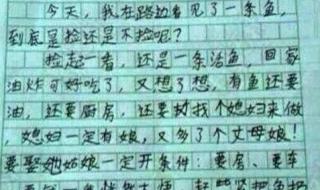 今天，我在路边看见了一条鱼，
到底是捡还是不捡呢？
捡起一看，还是一条活鱼，回家
油炸可好吃了，又想了想，有鱼还要
油，还要厨房，还要找个媳妇来做
，媳妇一定有娘，又多了个丈母娘！
要娶她姑娘一定开条件：要房、要车